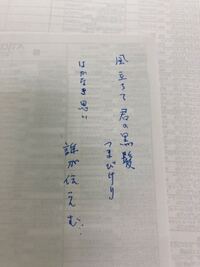 風立ちて君の黒髪
つまびけり
はかなき思い
誰が伝えむ